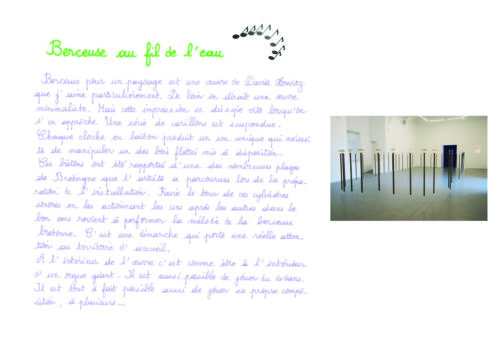 Berceuse au fil de l'eau
Berceuse pour un paysage est une œuvre de David Horvitz
que j'aime particulièrement. De loin on dirait une œuvre
minimaliste. Mais cette impression se dissipe vite lorsqu'on
s'en approche. Une série de carillons est suspendue.
Chaque cloche en laiton produit un son unique qui néces
te de manipuler un des bois flottés mis à disposition.
Ces bâtons ont été rapportés d'une des nombreuses plages
de Bretagne que l'artiste a parcourues lors de la prépa-
ration de l'installation. Faire le tour de ces cylindres
sonores en les actionnant les uns après les autres dans le
bon sens revient à performer la mélodie de la berceuse
bretonne. C'est une démarche qui porte une réelle atten-
tion au territoire d'accueil.
A l'intérieur de l'œuvre c'est comme être à l'intérieur
d'un orgue géant. Il est aussi possible de jouer du dedans.
Il est tout à fait possible aussi de jouer sa propre compo-
sition, à plusieurs...